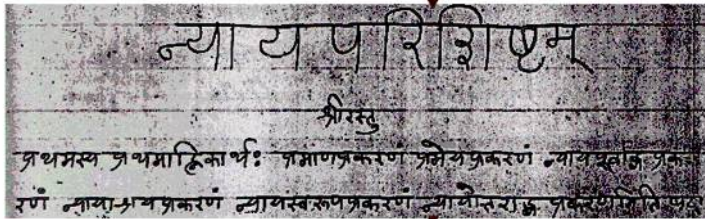 न्यायपरिशिष्टम्
श्रीरस्तु
प्रथमस्य प्रथमाह्निकार्थः प्रमाणप्रकरणं प्रमेयप्रकरणं न्यायपूर्वाङ्गप्रक
रणं न्यायाश्रयप्रकरणं न्यायस्वरूपप्रकरणं न्यायोत्तराङ्गप्रकरणमिति